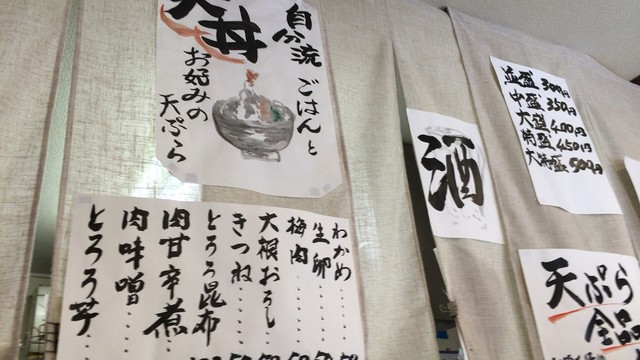 天丼
自分流
ごはんと
お好みの
天ぷら
酒
並盛 300円
中盛 350円
大盛 400円
特盛 450円
大特盛 500円
わかめ
生卵
梅肉
大根おろし
きつね
とろろ昆布
肉甘辛煮
肉味噌
とろろ芋
天ぷら
全品